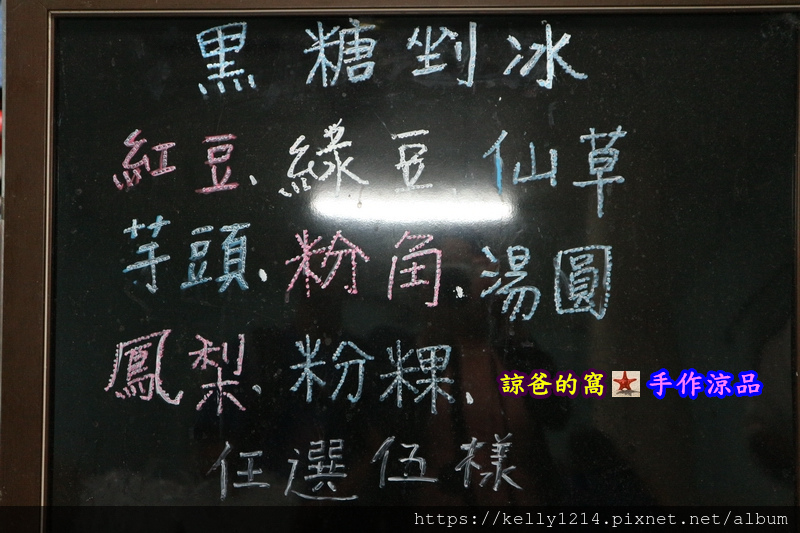 黑糖剉冰
紅豆、綠豆、仙草
芋頭、粉角、湯圓
鳳梨、粉粿、
諒爸的窩 手作涼品
任選伍樣
https://kelly1214.pixnet.net/album